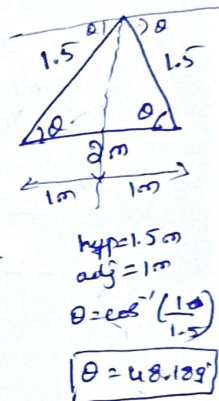 θ θ
1.5 1.5
θ θ
2m
1m 1m
hyp=1.5m
adj=1m
θ=cos⁻¹(1/1.5)
θ=48.189°